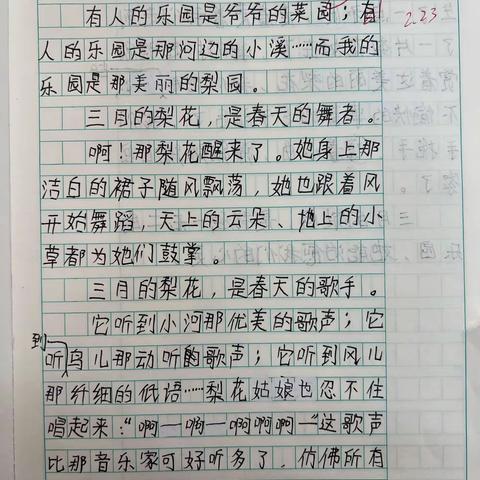 有人的乐园是爷爷的菜园；有
2.23
人的乐园是那河边的小溪……而我的
乐园是那美丽的梨园。
三月的梨花，是春天的舞者。
啊！那梨花醒来了。她身上那
洁白的裙子随风飘荡，她也跟着风
开始舞蹈，天上的云朵、地上的小
草都为她们鼓掌。
三月的梨花，是春天的歌手。
它听到小河那优美的歌声；它
到
听鸟儿那动听的歌声；它听到风儿
那纤细的低语……梨花姑娘也忍不住
唱起来：“啊一啊一啊啊啊一”这歌声
比那音乐家可好听多了，仿佛所有